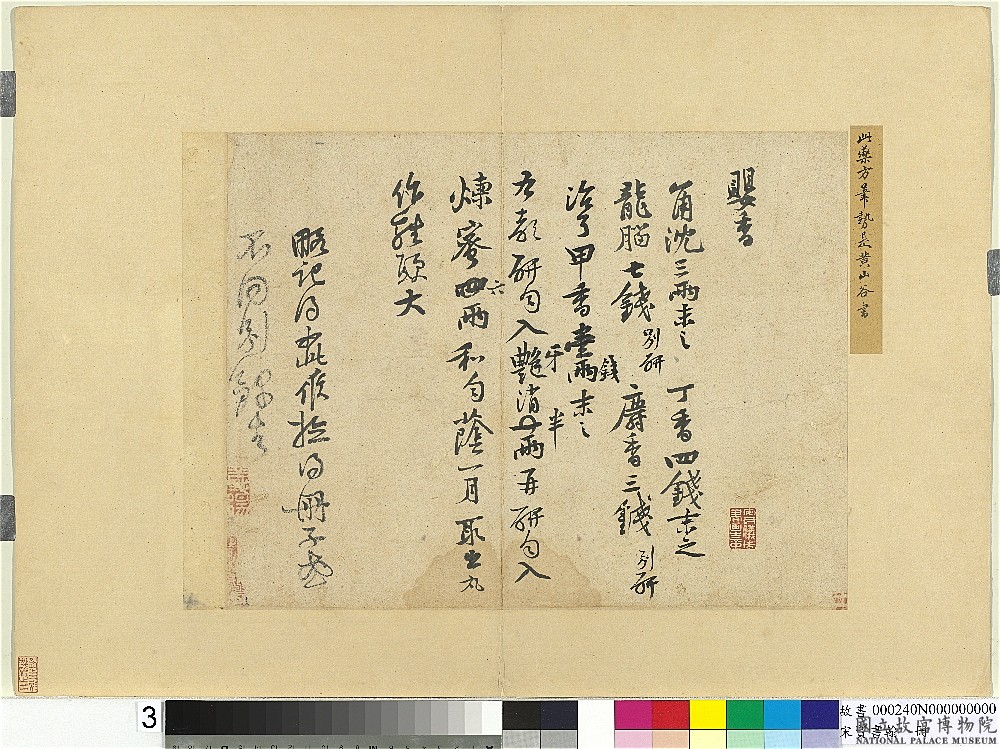 此藥方筆勢是黃山谷書
嬰香
角沈三兩末之 丁香四錢末之
龍腦七錢別研 麝香三錢別研
治了甲香壹兩錢末之
右都研勻入艷牙消半兩再研勻入
煉蜜四六兩和勻蔭一月取出丸
作雞頭大
略記得如此候撿得冊子或
不同別錄去
3
故書000240N000000000
國立故宮博物院
NATIONAL PALACE MUSEUM